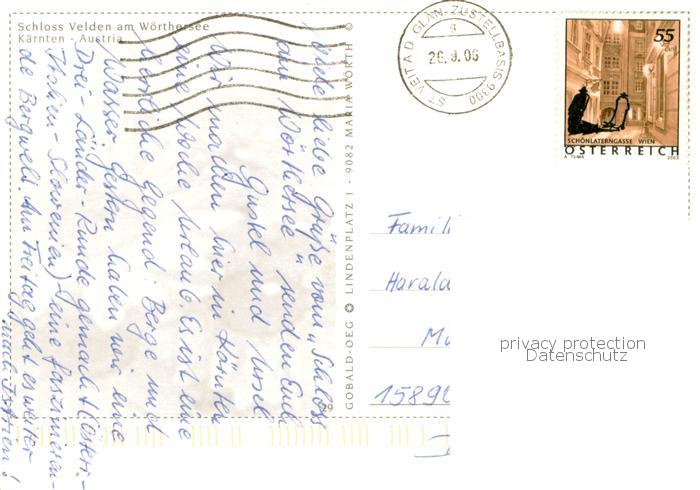 Schloss Velden am Wörthersee
Kärnten - Austria
Viele liebe Grüße vom „Schloss
am Wörthersee" senden Euch
Gustel und Ursel
Wir machen hier in Kärnten
eine Woche Urlaub. Es ist eine
herrliche Gegend, Berge und
Wasser. Gestern haben wir eine
Drei-Länder-Runde gemacht (Österr.-
Italien-Slowenien) - eine faszinieren-
de Bergwelt. Am Freitag geht es weiter
nach Istrien!
GOBALD-OEG LINDENPLATZ 1 · 9082 MARIA WÖRTH ©
29
ST. VEIT A.D. GLAN-ZUSTELLBASIS 9300
g
26.9.06
55
SCHÖNLATERNGASSE WIEN
ÖSTERREICH
A. TUMA 2003
Famili
Harald
15890
privacy protection
Datenschutz